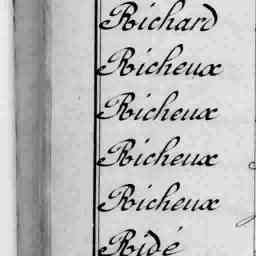 Richard
Richeux
Richeux
Richeux
Richeux
Ridé